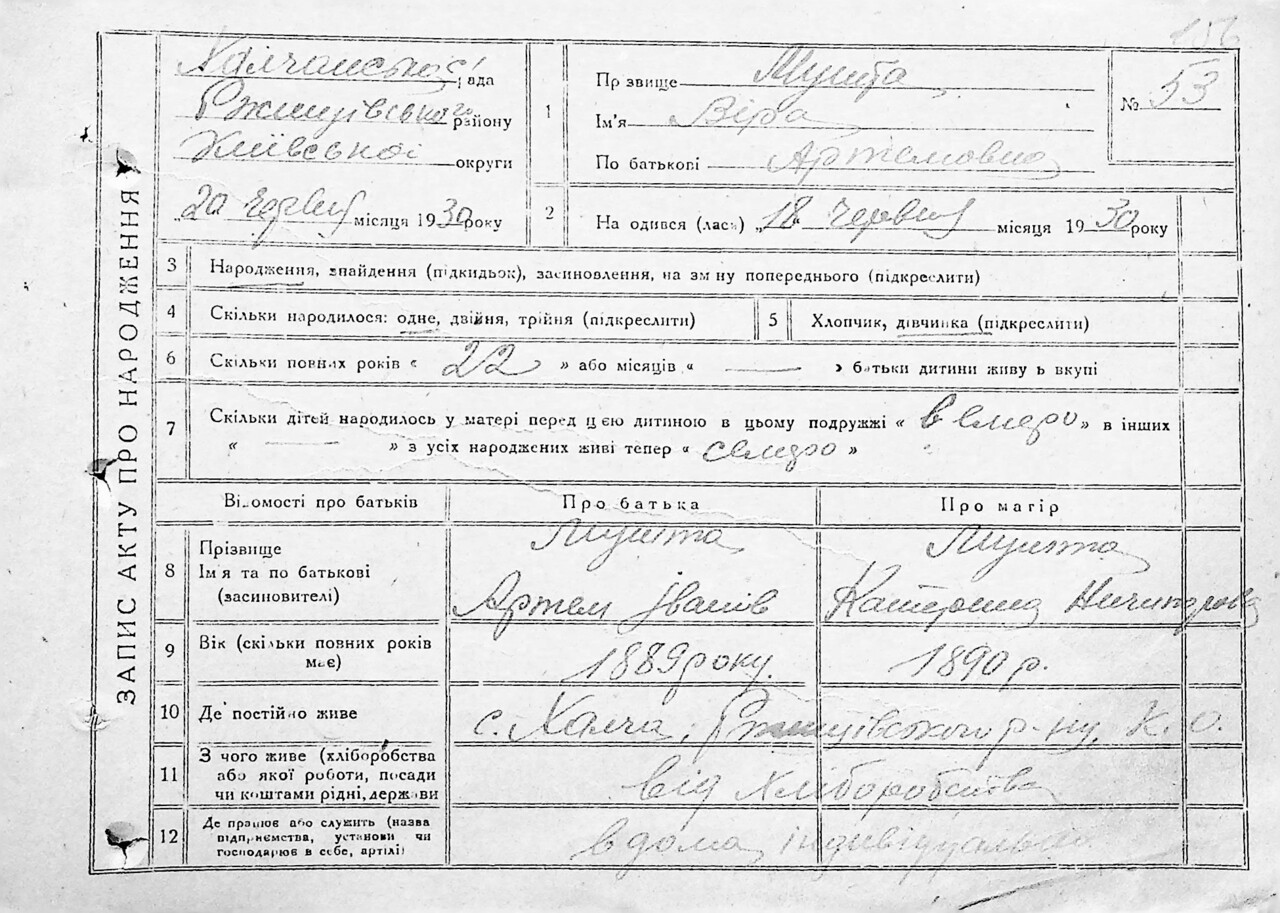 156
Халчанської рада
Ржищівського району
Київської округи
20 червня місяця 1930 року
1
Прізвище Мушта
Ім'я Віра
По батькові Артемовна
№ 53
2
На одився (лась) „18" червня місяця 1930 року
ЗАПИС АКТУ ПРО НАРОДЖЕННЯ
3 Народження, знайдення (підкидьок), засиновлення, на зміну попереднього (підкреслити)
4 Скільки народилося: одне, двійня, трійня (підкреслити)
5 Хлопчик, дівчинка (підкреслити)
6 Скільки повних років « 22 » або місяців « — » батьки дитини живуть вкупі
7 Скільки дітей народилось у матері перед цією дитиною в цьому подружжі « » в інших
« — » з усіх народжених живі тепер « семеро »
Відомості про батьків
Про батька
Про матір
8 Прізвище
Ім'я та по батькові
(засиновителі)
Мушта
Артем Іванів
Мушта
Катерина Ничипорова
9 Вік (скільки повних років
має)
1889 року.
1890 р.
10 Де постійно живе
с. Халча, Ржищівського р-ну, К. О.
11 З чого живе (хліборобства
або якої роботи, посади
чи коштами рідні, держави
від хліборобства
12 Де працює або служить (назва
підприємства, установи чи
господарює в себе, артілі)
вдома індивідуально